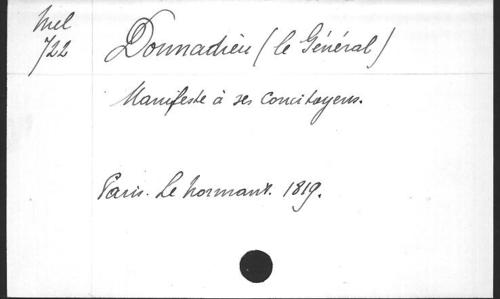 Mel
722
Donnadieu (le Général)
Manifeste à ses concitoyens.
Paris. Le Normant. 1819.